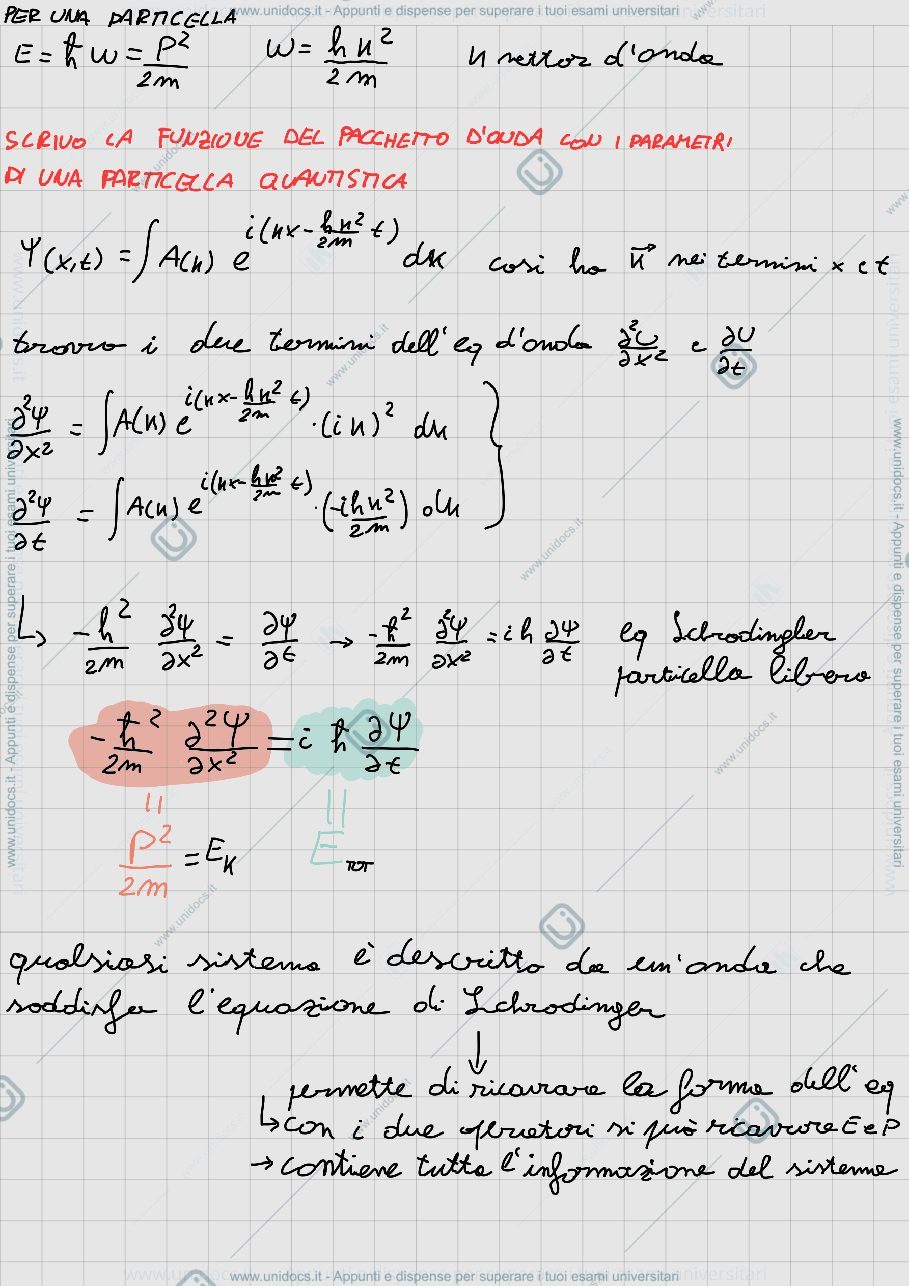 www.unidocs.it - Appunti e dispense per superare i tuoi esami universitari
PER UNA PARTICELLA
E = ħ w = P²/2m    w = ħk²/2m    k vettor d'onda
SCRIVO LA FUNZIONE DEL PACCHETTO D'ONDA CON I PARAMETRI
DI UNA PARTICELLA QUANTISTICA
Ψ(x,t) = ∫ A(k) e^{i(kx - ħk²/2m t)} dk   così ho k⃗ nei termini x e t
trovo i due termini dell'eq d'onda ∂²U/∂x² e ∂U/∂t
∂²Ψ/∂x² = ∫ A(k) e^{i(kx - ħk²/2m t)} · (ik)² dk }
∂²Ψ/∂t = ∫ A(k) e^{i(kx - ħk²/2m t)} · (-iħk²/2m) dk
↳ -ħ²/2m ∂²Ψ/∂x² = ∂Ψ/∂t → -ħ²/2m ∂²Ψ/∂x² = iħ ∂Ψ/∂t   eq Schrodingler
particella libera
-ħ²/2m ∂²Ψ/∂x² = i ħ ∂Ψ/∂t
= =
P²/2m = E_K    E_TOT
qualsiasi sistema è descritto da un'onda che
soddisfa l'equazione di Schrodinger
↓
permette di ricavare la forma dell'eq
↳ con i due operatori si può ricavare E e P
→ contiene tutta l'informazione del sistema
www.unidocs.it - Appunti e dispense per superare i tuoi esami universitari